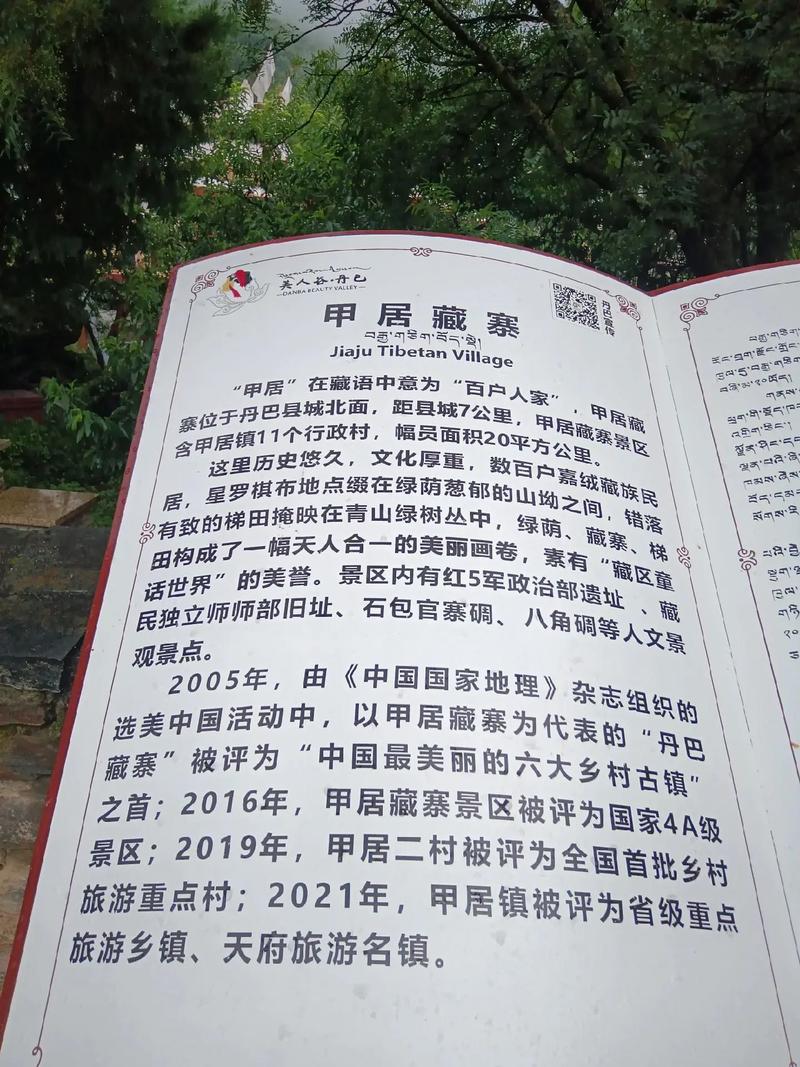 美人谷·丹巴
DANBA BEAUTY VALLEY
丹巴宣传
甲居藏寨
Jiaju Tibetan Village
“甲居”在藏语中意为“百户人家”，甲居藏
寨位于丹巴县城北面，距县城7公里，甲居藏寨景区
含甲居镇11个行政村，幅员面积20平方公里。
这里历史悠久，文化厚重，数百户嘉绒藏族民
居，星罗棋布地点缀在绿荫葱郁的山坳之间，错落
有致的梯田掩映在青山绿树丛中，绿荫、藏寨、梯
田构成了一幅天人合一的美丽画卷，素有“藏区童
话世界”的美誉。景区内有红5军政治部遗址、藏
民独立师师部旧址、石包官寨碉、八角碉等人文景
观景点。
2005年，由《中国国家地理》杂志组织的
选美中国活动中，以甲居藏寨为代表的“丹巴
藏寨”被评为“中国最美丽的六大乡村古镇”
之首；2016年，甲居藏寨景区被评为国家4A级
景区；2019年，甲居二村被评为全国首批乡村
旅游重点村；2021年，甲居镇被评为省级重点
旅游乡镇、天府旅游名镇。